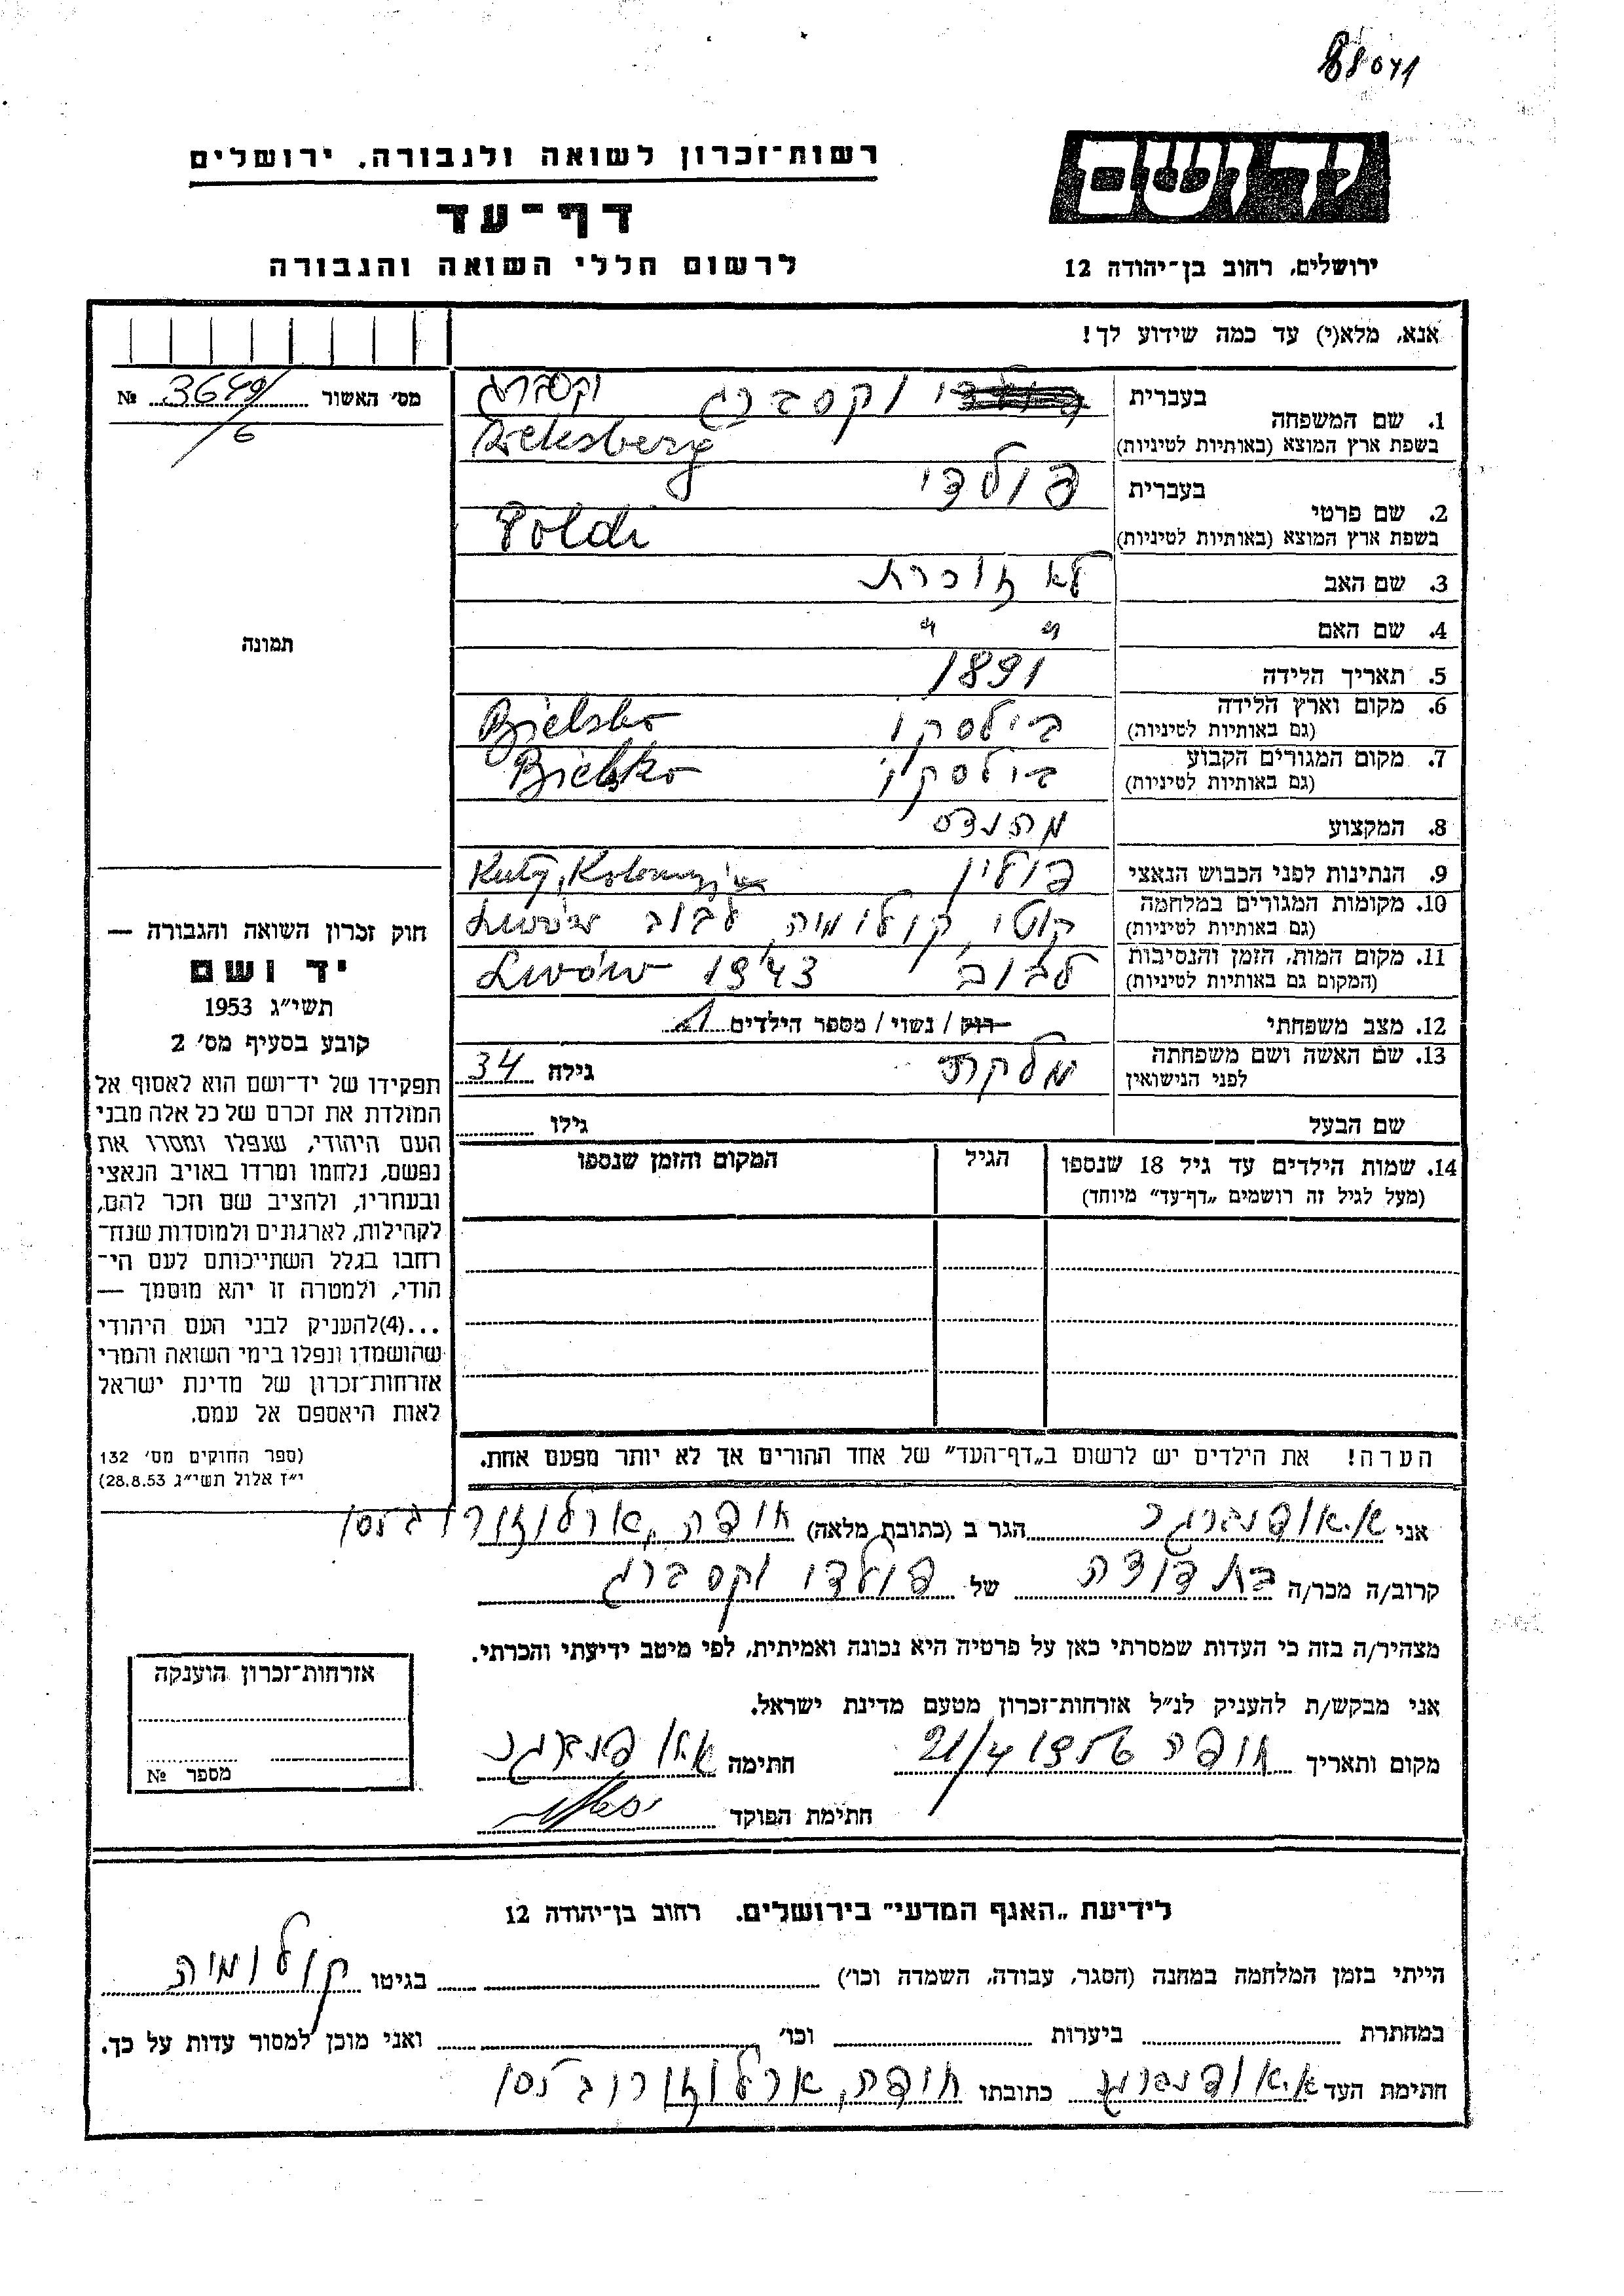 88041
רשות־זכרון לשואה ולגבורה, ירושלים
יד ושם
דף־עד
לרשום חללי השואה והגבורה
ירושלים, רחוב בן־יהודה 12
אנא, מלא(י) עד כמה שידוע לך!
מס׳ האשור № 3649/6
1. שם המשפחה
בעברית וקסברג וקסברג
בשפת ארץ המוצא (באותיות לטיניות)
2. שם פרטי
בעברית פולדי
בשפת ארץ המוצא (באותיות לטיניות) Poldi
3. שם האב לא זוכרת
4. שם האם " "
תמונה
5. תאריך הלידה 1891
6. מקום וארץ הלידה
(גם באותיות לטיניות) בילסקו Bielsko
7. מקום המגורים הקבוע
(גם באותיות לטיניות) בילסקו Bielsko
8. המקצוע מהנדס
9. הנתינות לפני הכבוש הנאצי פולין
Kuty, Kolomyja
10. מקומות המגורים במלחמה
(גם באותיות לטיניות) קוטי, קולומיה, לבוב Lwów
11. מקום המות, הזמן והנסיבות
(המקום גם באותיות לטיניות) לבוב 1943 Lwów
12. מצב משפחתי רוק / נשוי / מספר הילדים 1
13. שם האשה ושם משפחתה
לפני הנישואין גילה 34
שם הבעל גילו
14. שמות הילדים עד גיל 18 שנספו
(מעל לגיל זה רושמים „דף־עד״ מיוחד)
הגיל
המקום והזמן שנספו
הערה! את הילדים יש לרשום ב„דף־העד״ של אחד ההורים אך לא יותר מפעם אחת.
חוק זכרון השואה והגבורה —
יד ושם
תשי״ג 1953
קובע בסעיף מס׳ 2
תפקידו של יד־ושם הוא לאסוף אל
המולדת את זכרם של כל אלה מבני
העם היהודי, שנפלו ומסרו את
נפשם, נלחמו ומרדו באויב הנאצי
ובעוזריו, ולהציב שם וזכר להם,
לקהילות, לארגונים ולמוסדות שנח־
רבו בגלל השתייכותם לעם הי־
הודי, ולמטרה זו יהא מוסמך —
...(4)להעניק לבני העם היהודי
שהושמדו ונפלו בימי השואה והמרי
אזרחות־זכרון של מדינת ישראל
לאות היאספם אל עמם.
(ספר החוקים מס׳ 132
י״ז אלול תשי״ג 28.8.53)
אני הגר ב (כתובת מלאה) חיפה, ארלוזורוב
קרוב/ה מכר/ה בת דודה של פולדי וקסברג
מצהיר/ה בזה כי העדות שמסרתי כאן על פרטיה היא נכונה ואמיתית, לפי מיטב ידיעתי והכרתי.
אני מבקש/ת להעניק לנ״ל אזרחות־זכרון מטעם מדינת ישראל.
מקום ותאריך חיפה 21/4 1956 חתימה
חתימת הפוקד
אזרחות־זכרון הוענקה
מספר №
לידיעת „האגף המדעי״ בירושלים, רחוב בן־יהודה 12
הייתי בזמן המלחמה במחנה (הסגר, עבודה, השמדה וכו׳) בגיטו קולומיה
במחתרת ביערות וכו׳ ואני מוכן למסור עדות על כך.
חתימת העד כתובתו חיפה, ארלוזורוב